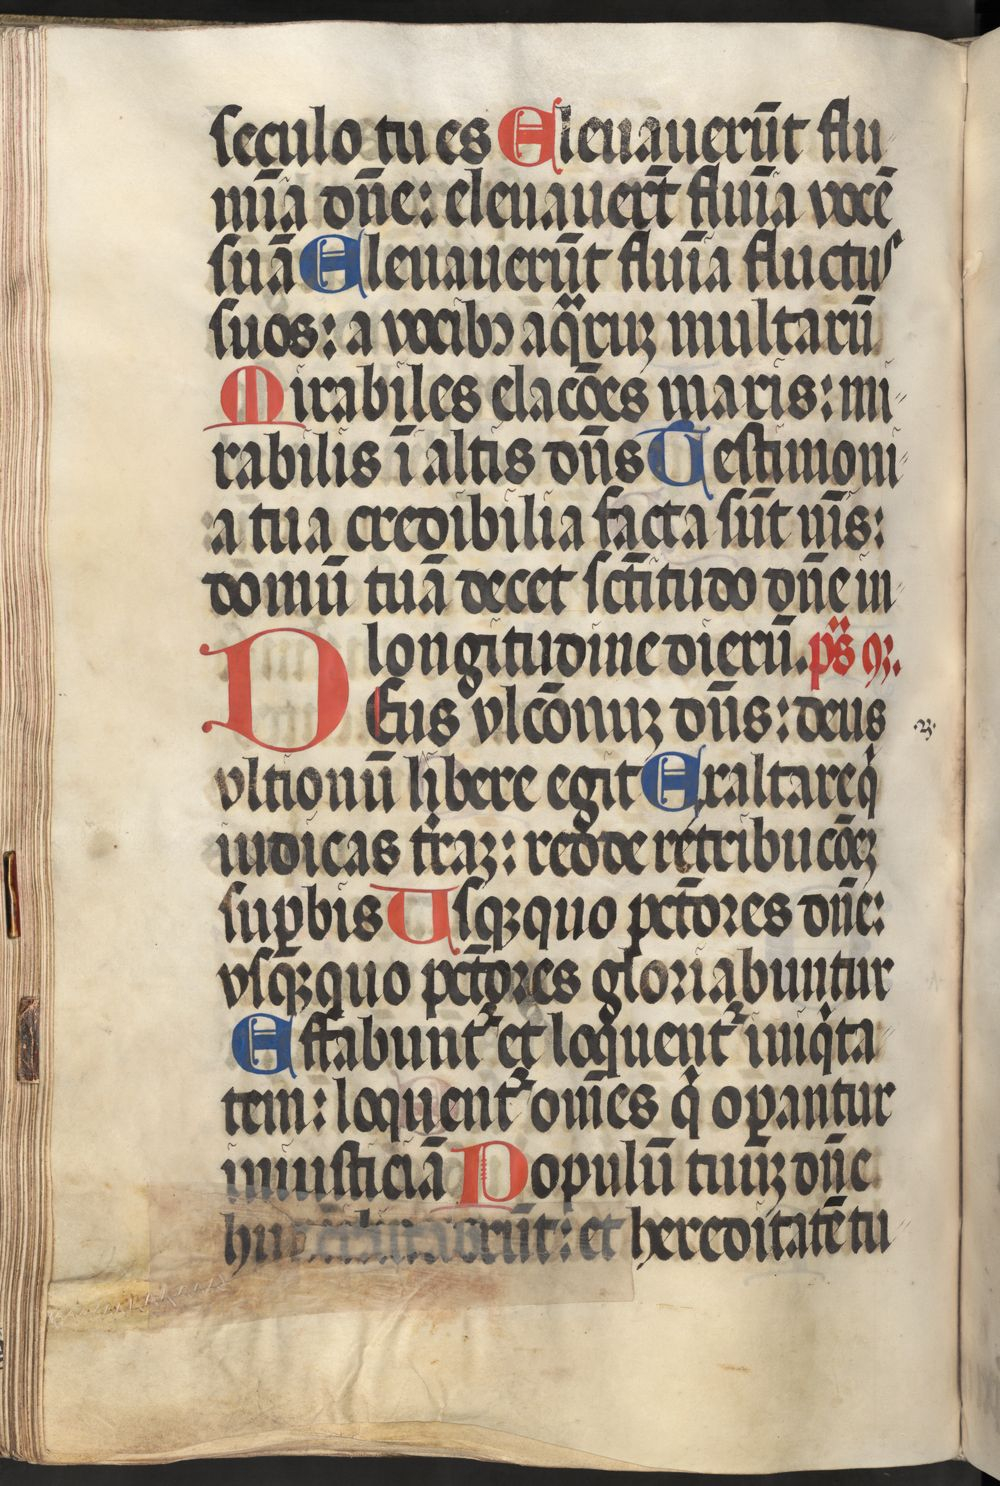 seculo tu es Eleuauerūt flu
mīa dn̄e: eleuauert̄ fluīa vocē
suā Eleuauerūt fluīa fluctus
suos: a vocibꝯ aqͣruꝫ multarū
Mirabiles elacōes maris: mi
rabilis ī altis dn̄s Testimoni
a tua credibilia facta sūt nīs:
domū tuā decet sctītudo dn̄e in
longitudine dierū. ps̄ 93.
DEus vlcōnuꝫ dn̄s: deus
vltionū libere egit Exaltare qͥ
iudicas tr̄aꝫ: redde retribucōeꝫ
suꝑbis Usqꝫquo pctōres dn̄e:
vsqꝫquo pctōres gloriabuntur
Effabuntᷣ et loquentᷣ iniqͥta
tem: loquentᷣ om̄es qͥ oꝑantur
iniusticiā Populū tuuꝫ dn̄e
hu et hereditatē tu